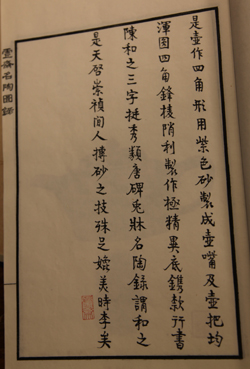 是壺作四角形用紫色砂製成壺嘴及壺把均
渾圓四角鋒棱隋利製作極精異底鐫款行書
陳和之三字挺秀類唐碑兎牀名陶錄謂和之
是天啓崇禎間人摶砂之技殊足媲美時李矣
名陶圖錄